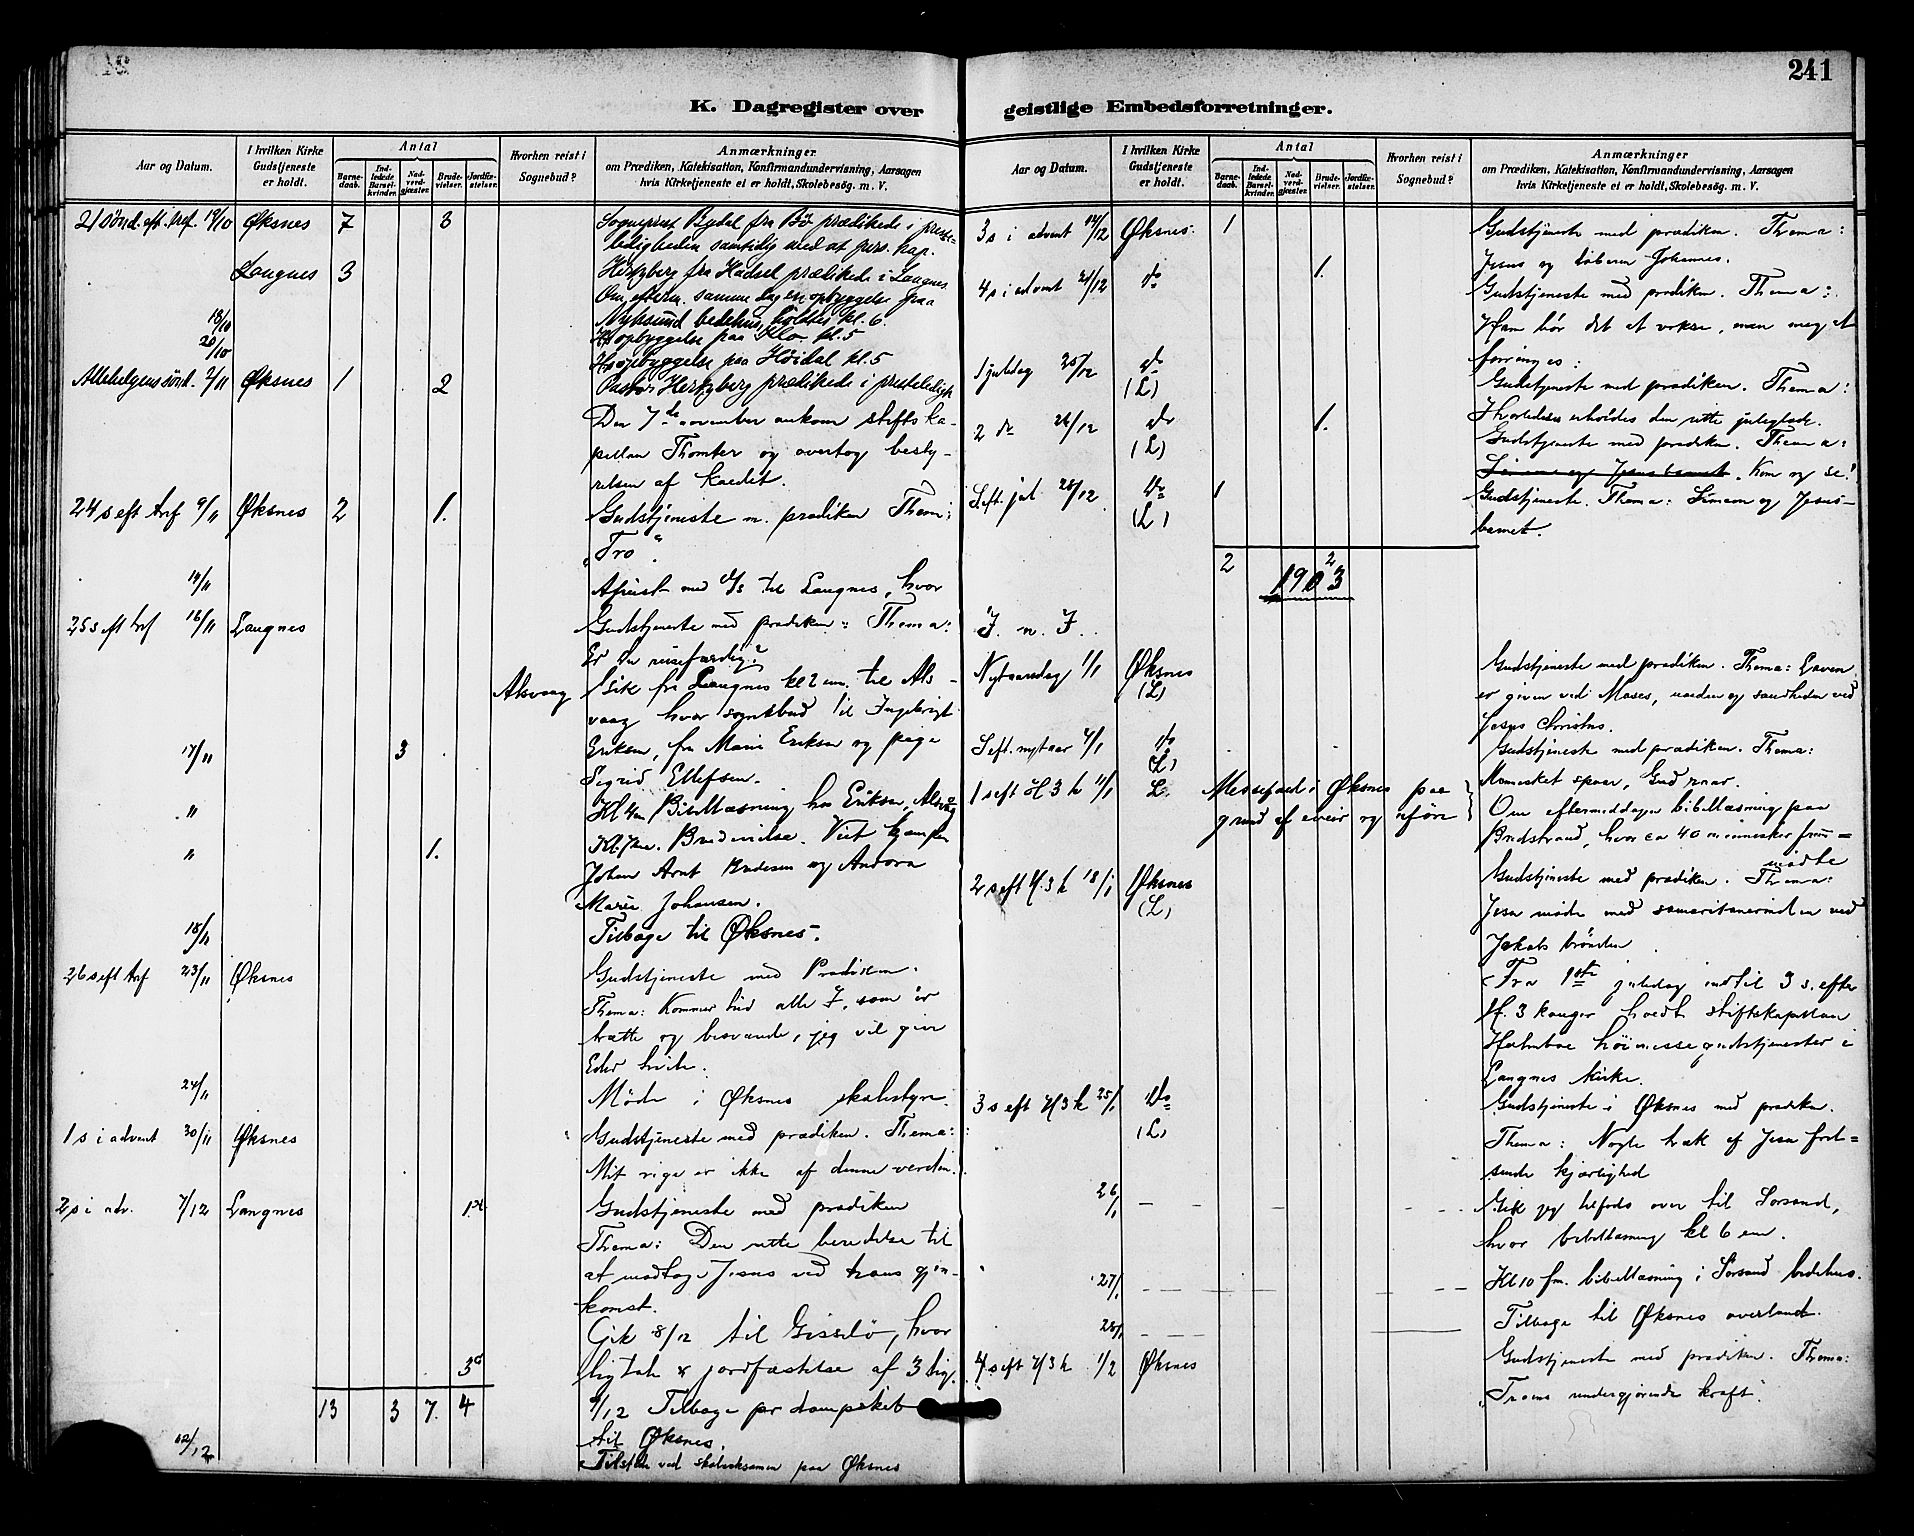 241
K. Dagregister over
Aar og Datum.
I hvilken Kirke Gudstjeneste er holdt.
Antal
Barnedaab.
Indledede Barselkvinder.
Nadverdgjæster.
Brudevielser.
Jordfæstelser.
Hvorhen reist i Sognebud?
Anmærkninger
om Prædiken, Katekisation, Konfirmandundervisning, Aarsagen
hvis Kirketjeneste ei er holdt, Skolebesøg. m. V.
21 sönd. eft. tref. 19/10 Øksnes 7 3 Sogneprest Bydal fra Bö prædikede i preste-
ledigheden samtidig med at pers. kap.
Langnes 3 Hertzberg fra Hadsel prædikede i Langnes.
Om efterm. samme dag en opbyggelse paa
Nyksund bedehus, holdtes kl. 6.
18/10 opbyggelse paa Klo kl. 5
20/10 opbyggelse paa Höidal kl. 5
Allehelgenssönd. 2/11 Øksnes 1 2 Pastor Hertzberg prædikede i presteledigh.
Den 7de november ankom stiftska-
pellan Thomter og overtog besty-
relsen af kaldet.
24 s eft tref 9/11 Øksnes 2 1. Gudstjeneste m. prædiken Them:
"Tro"
14/11 Afreist med d/s til Langnes, hvor
25 s eft tref 16/11 Langnes Gudstjeneste med prædiken: Thema:
Er du reisefærdig?
Alsvaag Gik fra Langnes kl 2 em. til Als-
vaag hvor sognebud til Ingebrigt
17/11 3 Eriksen, fru Marie Eriksen og pige
Sigrid Ellefsen.
" Kl 4 em Bibellæsning hos Eriksen, Alsvaag
" 1. Kl. 7 em. Brudevielse. Viet
Johan Arnt og Andora
Marie Johansen.
18/11 Tilbage til Øksnes.
26 s eft tref 23/11 Øksnes Gudstjeneste med Prædiken.
Thema: Kommer hid alle I, som er
trætte og besværede, jeg vil give
Eder hvile.
24/11 Möde i Øksnes skolestyre.
1 s i advent 30/11 Øksnes Gudstjeneste med prædiken. Thema:
Mit rige er ikke af denne verden.
2 s i adv. 7/12 Langnes 1 Gudstjeneste med prædiken
Thema: Den rette beredelse til
at modtage Jesus ved hans gjen-
komst.
Gik 8/12 til Gisslö, hvor
3 ligtale & jordfæstelse af 3 lig.
13 3 7. 4 9/12 Tilbage pr dampskib
til Øksnes.
12/12 Tilstede ved skoleeksamen paa Øksnes
geistlige Embedsforretninger.
Aar og Datum.
I hvilken Kirke Gudstjeneste er holdt.
Antal
Barnedaab.
Indledede Barselkvinder.
Nadverdgjæster.
Brudevielser.
Jordfæstelser.
Hvorhen reist i Sognebud?
Anmærkninger
om Prædiken, Katekisation, Konfirmandundervisning, Aarsagen
hvis Kirketjeneste ei er holdt, Skolebesøg. m. V.
3 s i advent 14/12 Øksnes. 1 Gudstjeneste med prædiken. Thema:
Jesus og döberen Johannes.
4 s i advent 21/12 do 1. Gudstjeneste med prædiken. Thema:
Ham bör det at vokse, men meg at
forringes.
1 juledag 25/12 do (L) Gudstjeneste med prædiken. Thema:
Hvorledes erholdes den rette juleglæde.
2 do 26/12 do (L) 1. Gudstjeneste med prædiken. Thema:
Simeon og Jesusbarnet. Kom og se!
S. eft. jul 28/12 do (L) 1 Gudstjeneste. Thema: Simeon og Jesus-
barnet.
2 2
1903
I. n. J.
Nytaarsdag 1/1 Øksnes (L) Gudstjeneste med prædiken. Thema: Loven
er given ved Moses, naaden og sandheden ved
Jesus Christus.
S. eft. nytaar 4/1 do (L) Gudstjeneste med prædiken. Thema:
Mennesket spaar, Gud raar.
1 s eft H 3 k 11/1 L. Messefald i Øksnes paa
grund af uveir og uföre
Om eftermiddagen bibellæsning paa
Breidstrand, hvor ca 40 mennesker frem=
mödte
2 s eft H. 3 k 18/1 Øksnes (L) Gudstjeneste med prædiken. Thema:
Jesu möde med samaritanerinden ved
Jakobs brönden.
Fra 1ste juledag indtil 3 s. efter
H. 3 konger holdt stiftskapellan
Holmboe höimessegudstjenester i
Langnes kirke.
3 s eft H 3 k 25/1 do (L) Gudstjeneste i Øksnes med prædiken.
Thema: Nogle træk af Jesu frel=
sende kjærlighed
26/1 Gik jeg tilfods over til Sörsand,
hvor bibellæsning kl 6 em.
27/1 Kl 10 fm. bibellæsning i Sörsand bedehus.
28/1 Tilbage til Øksnes overland.
4 s eft H 3 k 1/2 Øksnes Gudstjeneste med prædiken. Thema:
"Troens undergjörende kraft".